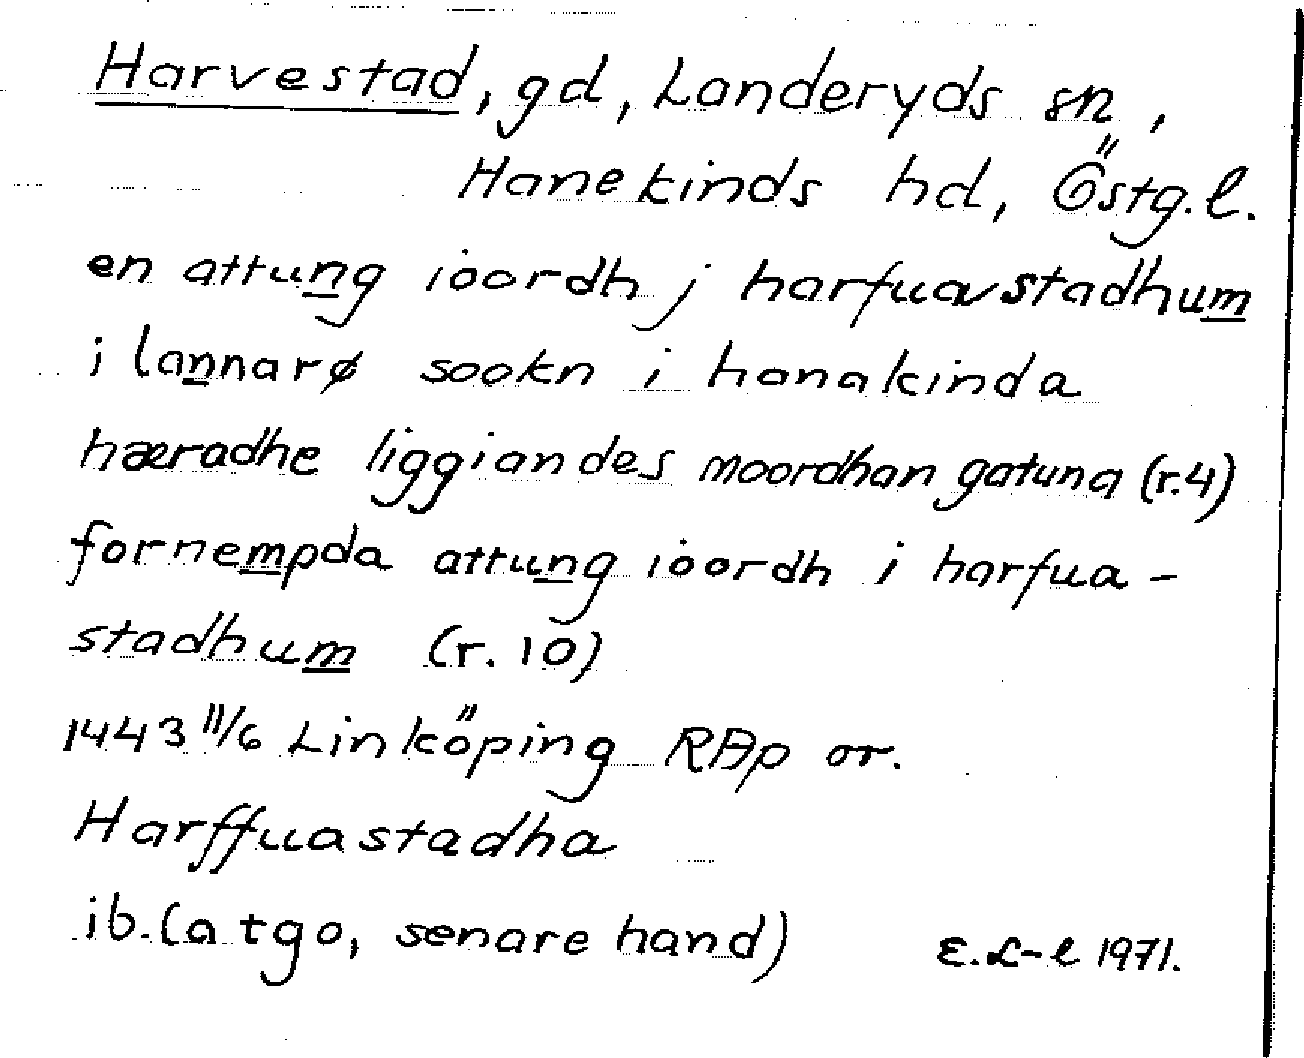 Harvestad, gd, Landeryds sn,
Hanekinds hd, Östg.l.
en attung ioordh j harfuastadhum
i lannarø sookn i hanakinda
hæradhe liggiandes moordhan gatuna (r.4)
fornempda attung ioordh i harfua-
stadhum (r. 10)
1443 11/6 Linköping RAp or.
Harffuastadha
ib. (a tgo, senare hand) E.L-l 1971.